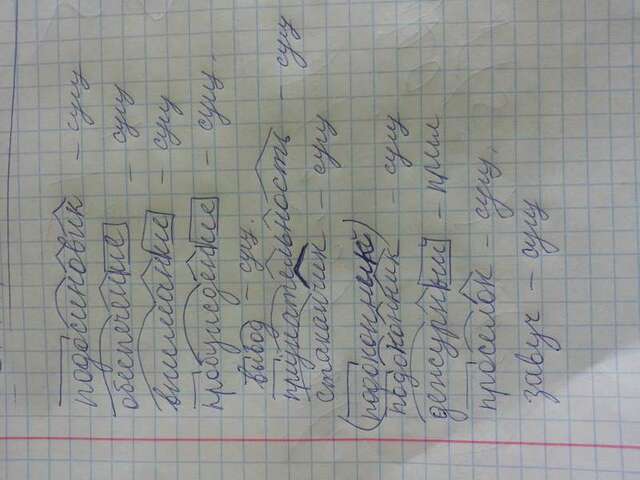 подосиновик – сущ
обеспечение – сущ
внимание – сущ
пробуждение – сущ.
вывод – сущ.
признательность – сущ
стаканчик – сущ
(подоконный)
подоконник – сущ
дежурный – прил
проселок – сущ.
завуч – сущ